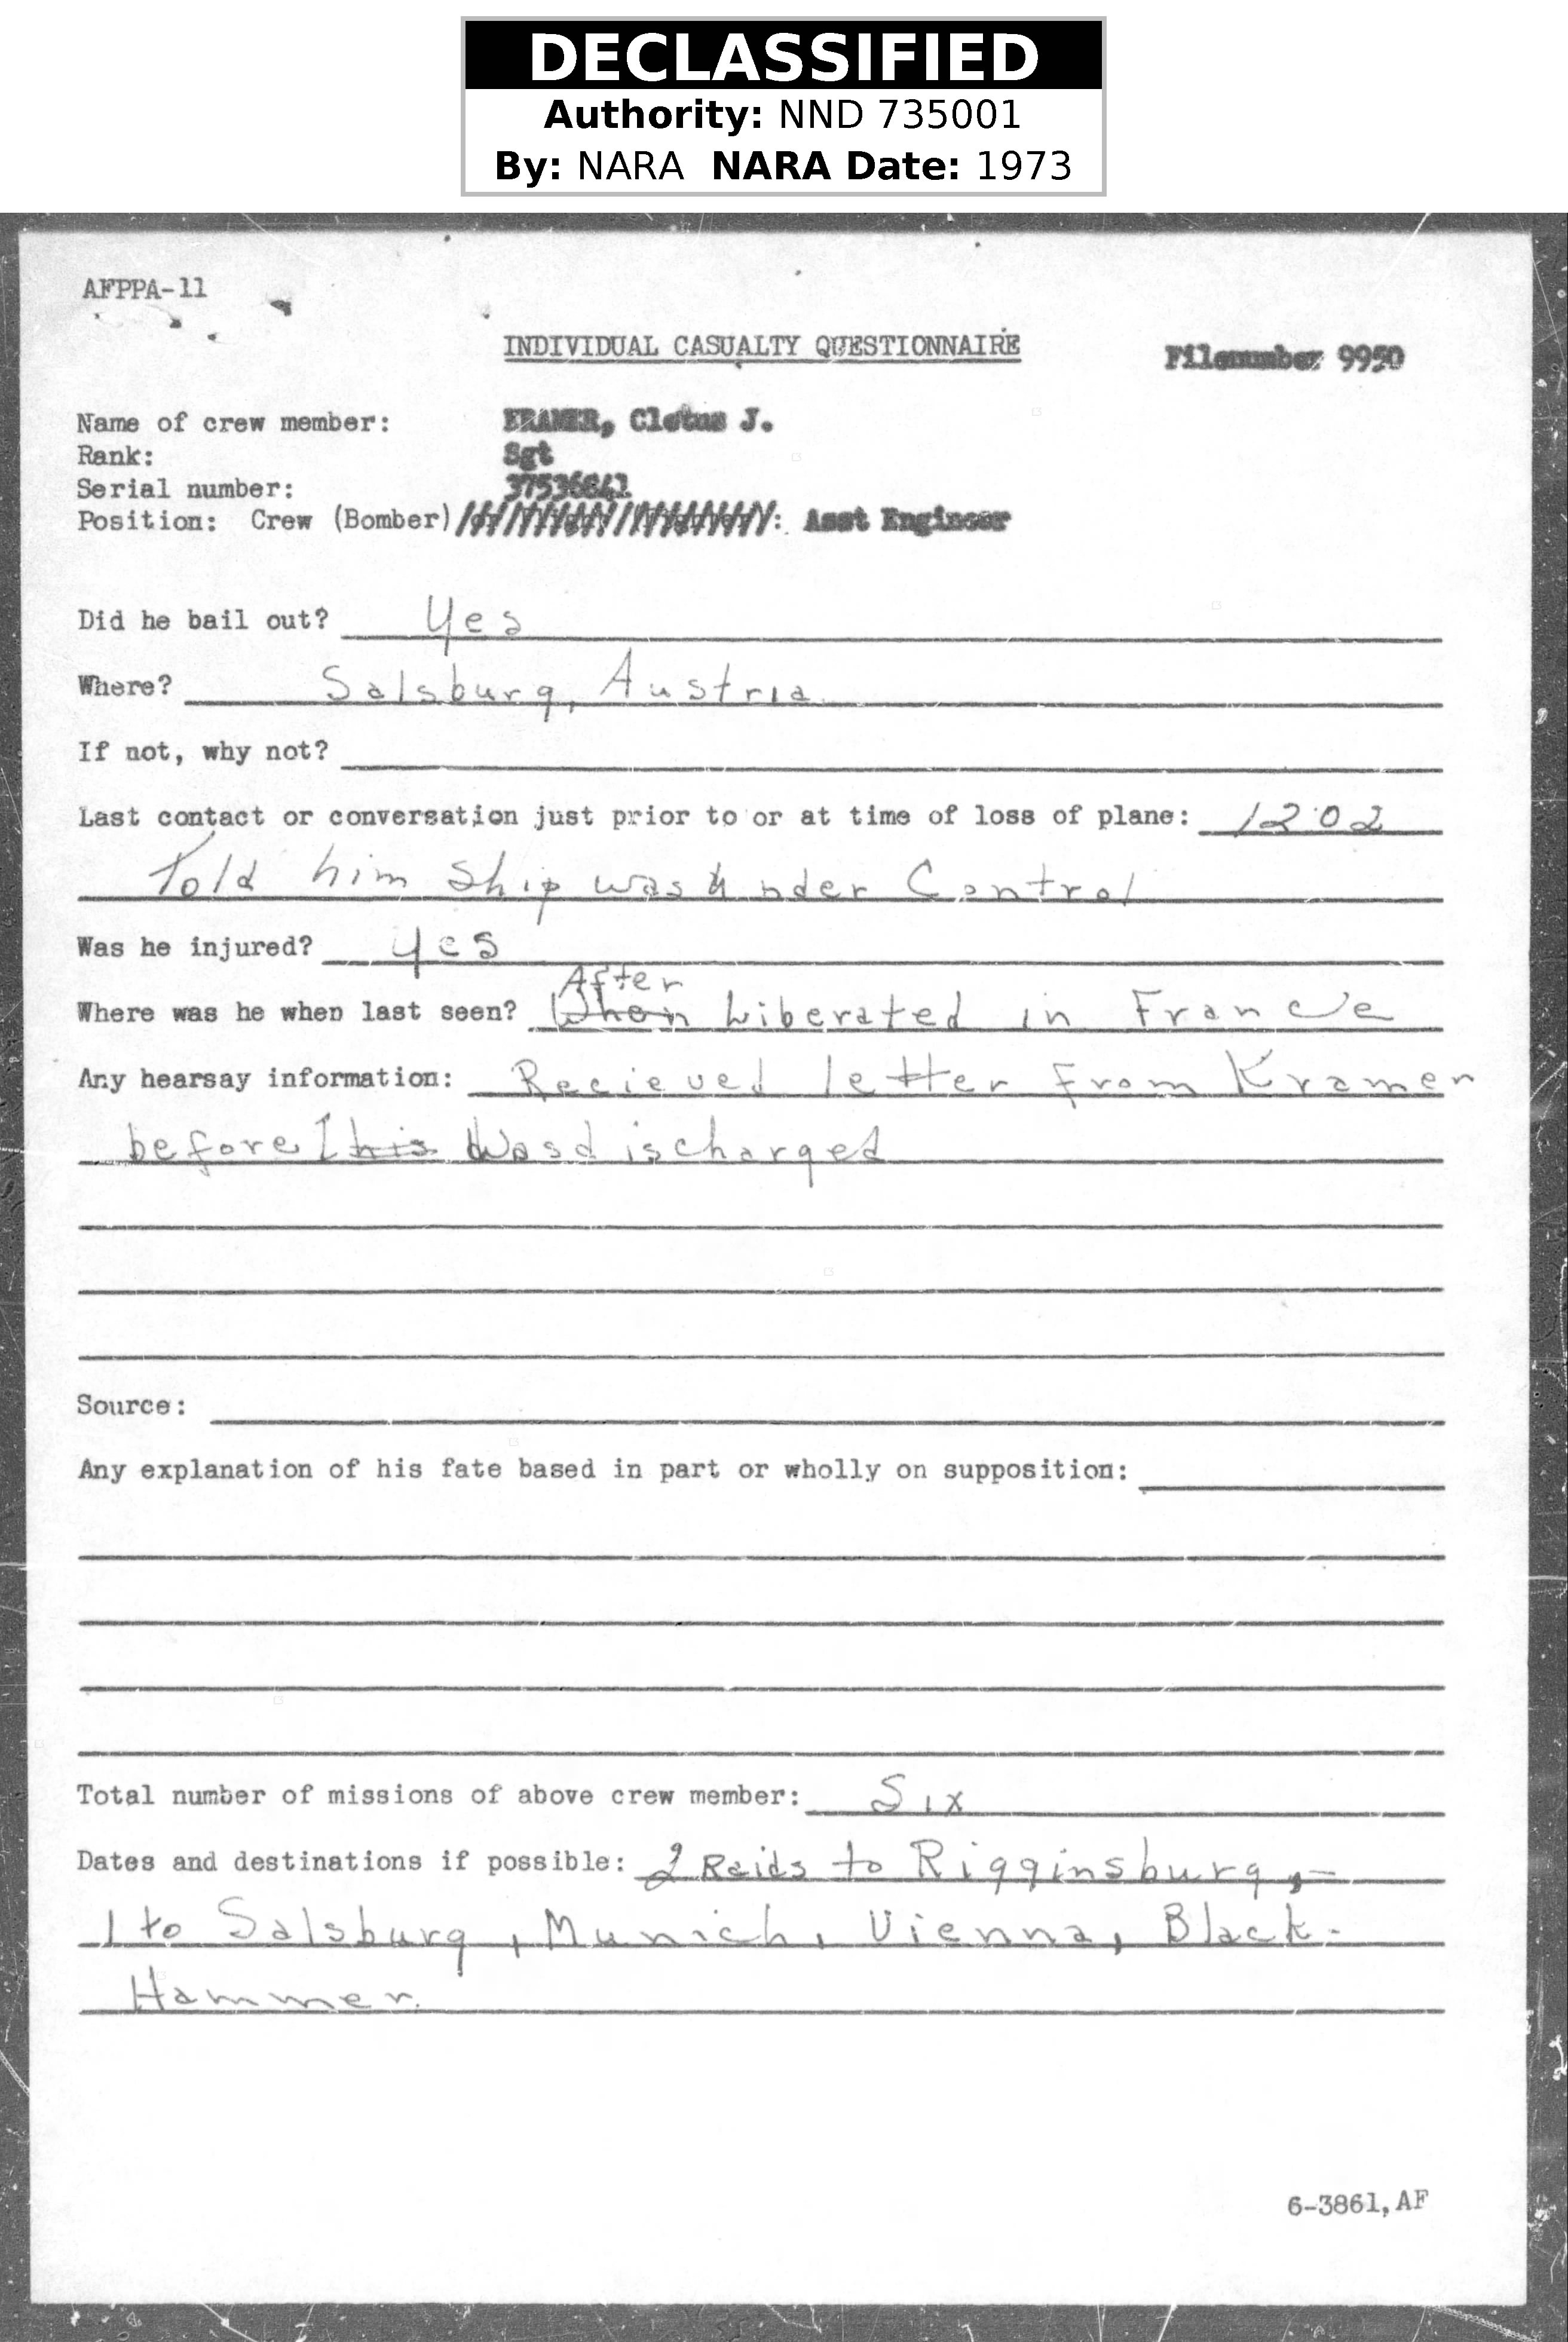 DECLASSIFIED
Authority: NND 735001
By: NARA NARA Date: 1973
AFPPA-11
INDIVIDUAL CASUALTY QUESTIONNAIRE
Filenumber 9950
Name of crew member: KRAMER, Cletus J.
Rank: Sgt
Serial number: 37536841
Position: Crew (Bomber) : Asst Engineer
Did he bail out? Yes
Where? Salsburg, Austria
If not, why not?
Last contact or conversation just prior to or at time of loss of plane: 1202
Told him ship was under Control
Was he injured? Yes
After
Where was he when last seen? When Liberated in France
Any hearsay information: Recieved letter From Kramer
before I his was discharged
Source:
Any explanation of his fate based in part or wholly on supposition:
Total number of missions of above crew member: Six
Dates and destinations if possible: 2 Raids to Rigginsburg,-
1 to Salsburg, Munich, Vienna, Black-
Hammer.
6-3861,AF